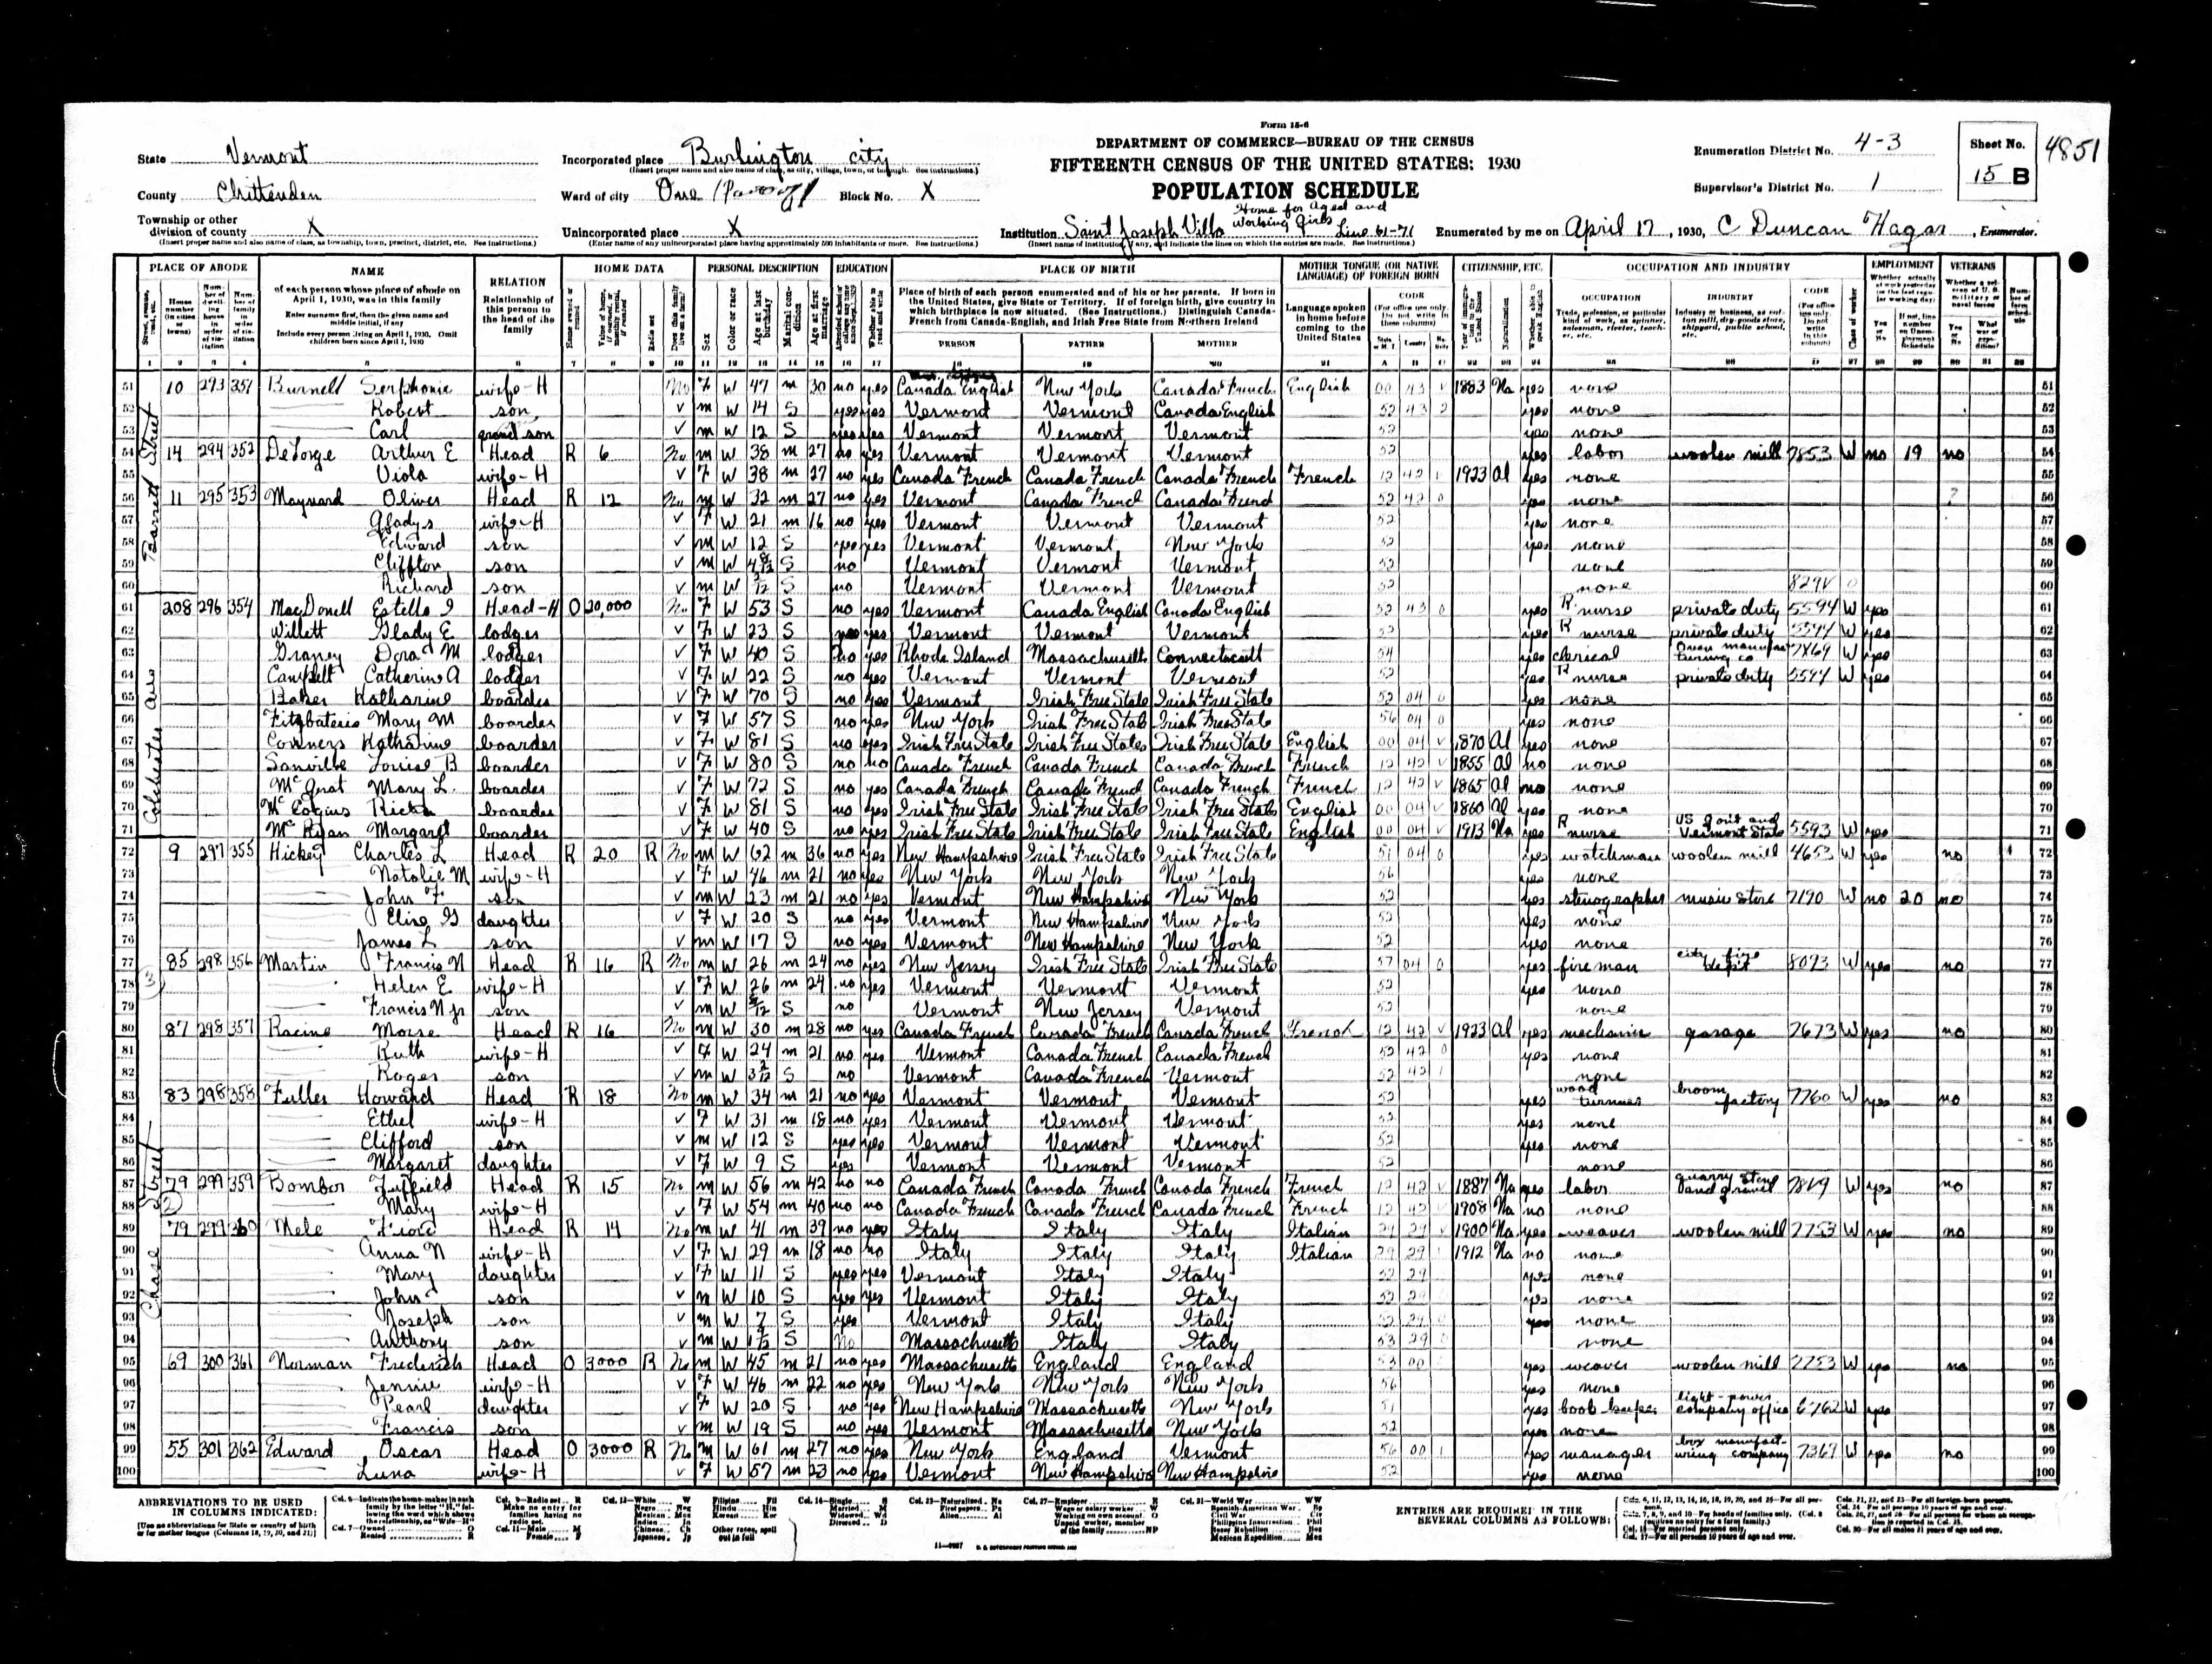 Form 15-6
DEPARTMENT OF COMMERCE—BUREAU OF THE CENSUS
FIFTEENTH CENSUS OF THE UNITED STATES: 1930
POPULATION SCHEDULE
State Vermont
County Chittenden
Township or other division of county X
(Insert proper name and also name of class, as township, town, precinct, district, etc. See instructions.)
Incorporated place Burlington city
(Insert proper name and also name of class, as city, village, town, or borough. See instructions.)
Ward of city One Block No. X
Unincorporated place X
(Enter name of any unincorporated place having approximately 500 inhabitants or more. See instructions.)
Home for Aged and
working girls
Institution Saint Joseph Villa Line 61-71
(Insert name of institution, if any, and indicate the lines on which the entries are made. See instructions.)
Enumeration District No. 4-3
Supervisor's District No. 1
Sheet No. 15 B
4851
Enumerated by me on April 17, 1930, C Duncan Hagar, Enumerator.
PLACE OF ABODE NAME RELATION HOME DATA PERSONAL DESCRIPTION EDUCATION PLACE OF BIRTH MOTHER TONGUE (OR NATIVE LANGUAGE) OF FOREIGN BORN CITIZENSHIP, ETC. OCCUPATION AND INDUSTRY EMPLOYMENT VETERANS
of each person whose place of abode on April 1, 1930, was in this family
Enter surname first, then the given name and middle initial, if any
Include every person living on April 1, 1930. Omit children born since April 1, 1930
Relationship of this person to the head of the family
Place of birth of each person enumerated and of his or her parents. If born in the United States, give State or Territory. If of foreign birth, give country in which birthplace is now situated. (See Instructions.) Distinguish Canada-French from Canada-English, and Irish Free State from Northern Ireland
PERSON FATHER MOTHER
Language spoken in home before coming to the United States
OCCUPATION INDUSTRY CODE
Barrett Street
51 10 293 351 Burnell Serphonie wife-H No F W 47 m 30 no yes Canada English New York Canada French English 00 43 V 1883 Na yes none
52 Robert son V m W 14 S yes yes Vermont Vermont Canada English 52 43 2 yes none
53 Carl grand son V m W 12 S yes yes Vermont Vermont Vermont 52 yes none
54 14 294 352 DeLorge Arthur E Head R 6 No m W 38 m 27 no yes Vermont Vermont Vermont 52 yes labor woolen mill 7853 W no 19 no
55 Viola wife-H V F W 38 m 27 no yes Canada French Canada French Canada French French 12 42 1923 Al yes none
56 11 295 353 Maynard Oliver Head R 12 No m W 32 m 27 no yes Vermont Canada French Canada French 52 42 0 yes none ?
57 Gladys wife-H V F W 21 m 16 no yes Vermont Vermont Vermont 52 yes none
58 Edward son V m W 12 S yes yes Vermont Vermont New York 52 yes none
59 Cliffton son V m W 4 8/12 S no Vermont Vermont Vermont 52 none
60 Richard son V m W S no Vermont Vermont Vermont 52 none
Colchester Ave
61 208 296 354 MacDonell Estella I Head-H O 20,000 No F W 53 S no yes Vermont Canada English Canada English 52 43 0 yes R nurse private duty 5594 W yes
62 Willett Glady E lodger V F W 23 S yes yes Vermont Vermont Vermont 52 yes R nurse private duty 5594 W yes
63 Graney Dora M lodger V F W 40 S no yes Rhode Island Massachusetts Connecticutt 54 yes clerical W yes
64 Campbell Catherine A lodger V F W 22 S no yes Vermont Vermont Vermont 52 yes R nurse private duty 5594 W yes
65 Baker Katharine boarder V F W 70 S no yes Vermont Irish Free State Irish Free State 52 04 0 yes none
66 Mary M boarder V F W 57 S no yes New York Irish Free State Irish Free State 56 04 0 yes none
67 Conners Katharine boarder V F W 81 S no yes Irish Free State Irish Free State Irish Free State English 00 04 V 1870 Al yes none
68 Sanville Louise B boarder V F W 80 S no no Canada French Canada French Canada French French 12 42 V 1855 Al no none
69 Mary L. boarder V F W 72 S no yes Canada French Canada French Canada French French 12 42 V 1865 Al no none
70 boarder V F W 81 S no yes Irish Free State Irish Free State Irish Free State English 00 04 V 1860 Al yes none
71 Mc Ryan Margaret boarder V F W 40 S no yes Irish Free State Irish Free State Irish Free State English 00 04 V 1913 Na yes R nurse US Gov't and Vermont State 5593 W yes
Chase Street
72 9 297 355 Hickey Charles L Head R 20 R No m W 62 m 36 no yes New Hampshire Irish Free State Irish Free State 51 04 0 yes watchman woolen mill 4653 W yes no
73 Natalie M wife-H V F W 46 m 21 no yes New York New York New York 56 yes none
74 John F son V m W 23 m 21 no yes Vermont New Hampshire New York 52 yes stenographer music store 7190 W no 20 no
75 Elise G daughter V F W 20 S no yes Vermont New Hampshire New York 52 yes none
76 James L son V m W 17 S no yes Vermont New Hampshire New York 52 yes none
77 85 298 356 Martin Francis N Head R 16 R No m W 26 m 24 no yes New Jersey Irish Free State Irish Free State 57 04 0 yes fireman city fire dept 8093 W yes no
78 Helen E wife-H V F W 26 m 24 no yes Vermont Vermont Vermont 52 yes none
79 Francis N jr son V m W S no Vermont New Jersey Vermont 52 none
80 87 298 357 Racine Morse Head R 16 No m W 30 m 28 no yes Canada French Canada French Canada French French 12 42 V 1923 Al yes mechanic garage 7673 W yes no
81 Ruth wife-H V F W 24 m 21 no yes Vermont Canada French Canada French 52 42 0 yes none
82 Roger son V m W S no Vermont Canada French Vermont 52 42 1 none
83 83 298 358 Fuller Howard Head R 18 No m W 34 m 21 no yes Vermont Vermont Vermont 52 yes wood turner broom factory 7760 W yes no
84 Ethel wife-H V F W 31 m 18 no yes Vermont Vermont Vermont 52 yes none
85 Clifford son V m W 12 S yes yes Vermont Vermont Vermont 52 yes none
86 Margaret daughter V F W 9 S yes Vermont Vermont Vermont 52 none
87 79 299 359 Bombor Head R 15 No m W 56 m 42 no no Canada French Canada French Canada French French 12 42 V 1887 Na yes labor quarry stone and gravel W yes no
88 Mary wife-H V F W 54 m 40 no no Canada French Canada French Canada French French 12 42 V 1908 Na no none
89 79 299 360 Mele Fiore Head R 14 No m W 41 m 39 no yes Italy Italy Italy Italian 29 29 V 1900 Na yes weaver woolen mill 7753 W yes no
90 Anna N wife-H V F W 29 m 18 no no Italy Italy Italy Italian 29 29 1912 Na no none
91 Mary daughter V F W 11 S yes yes Vermont Italy Italy 52 29 yes none
92 John son V m W 10 S yes yes Vermont Italy Italy 52 29 yes none
93 Joseph son V m W 7 S yes Vermont Italy Italy 52 29 0 yes none
94 Anthony son V m W S No Massachusetts Italy Italy 53 29 0 none
95 69 300 361 Norman Frederick Head O 3000 R No m W 45 m 21 no yes Massachusetts England England 53 00 yes weaver woolen mill 7753 W yes no
96 Jennie wife-H V F W 46 m 22 no yes New York New York New York 56 yes none
97 Pearl daughter V F W 20 S no yes New Hampshire Massachusetts New York 51 yes book keeper light-power company office 6762 W yes
98 Francis son V m W 19 S no yes Vermont Massachusetts New York 52 yes none
99 55 301 362 Edward Oscar Head O 3000 R No m W 61 m 27 no yes New York England Vermont 56 00 1 yes manager box manufacturing company 7367 W yes no
100 Luna wife-H V F W 57 m 23 no yes Vermont New Hampshire New Hampshire 52 yes none
ABBREVIATIONS TO BE USED IN COLUMNS INDICATED:
[Use no abbreviations for State or country of birth or for mother tongue (Columns 18, 19, 20, and 21)]
ENTRIES ARE REQUIRED IN THE SEVERAL COLUMNS AS FOLLOWS: